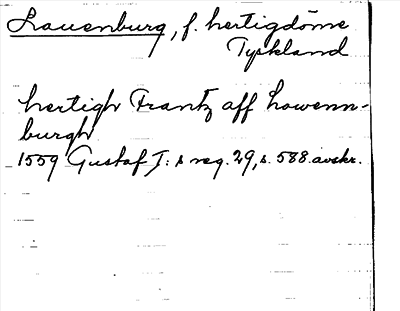 Lauenburg, f. hertigdöme
Tyskland
hertigh Frantz aff Lowenn-
burgh
1559 Gustaf I:s reg. 29, s. 588. avskr.